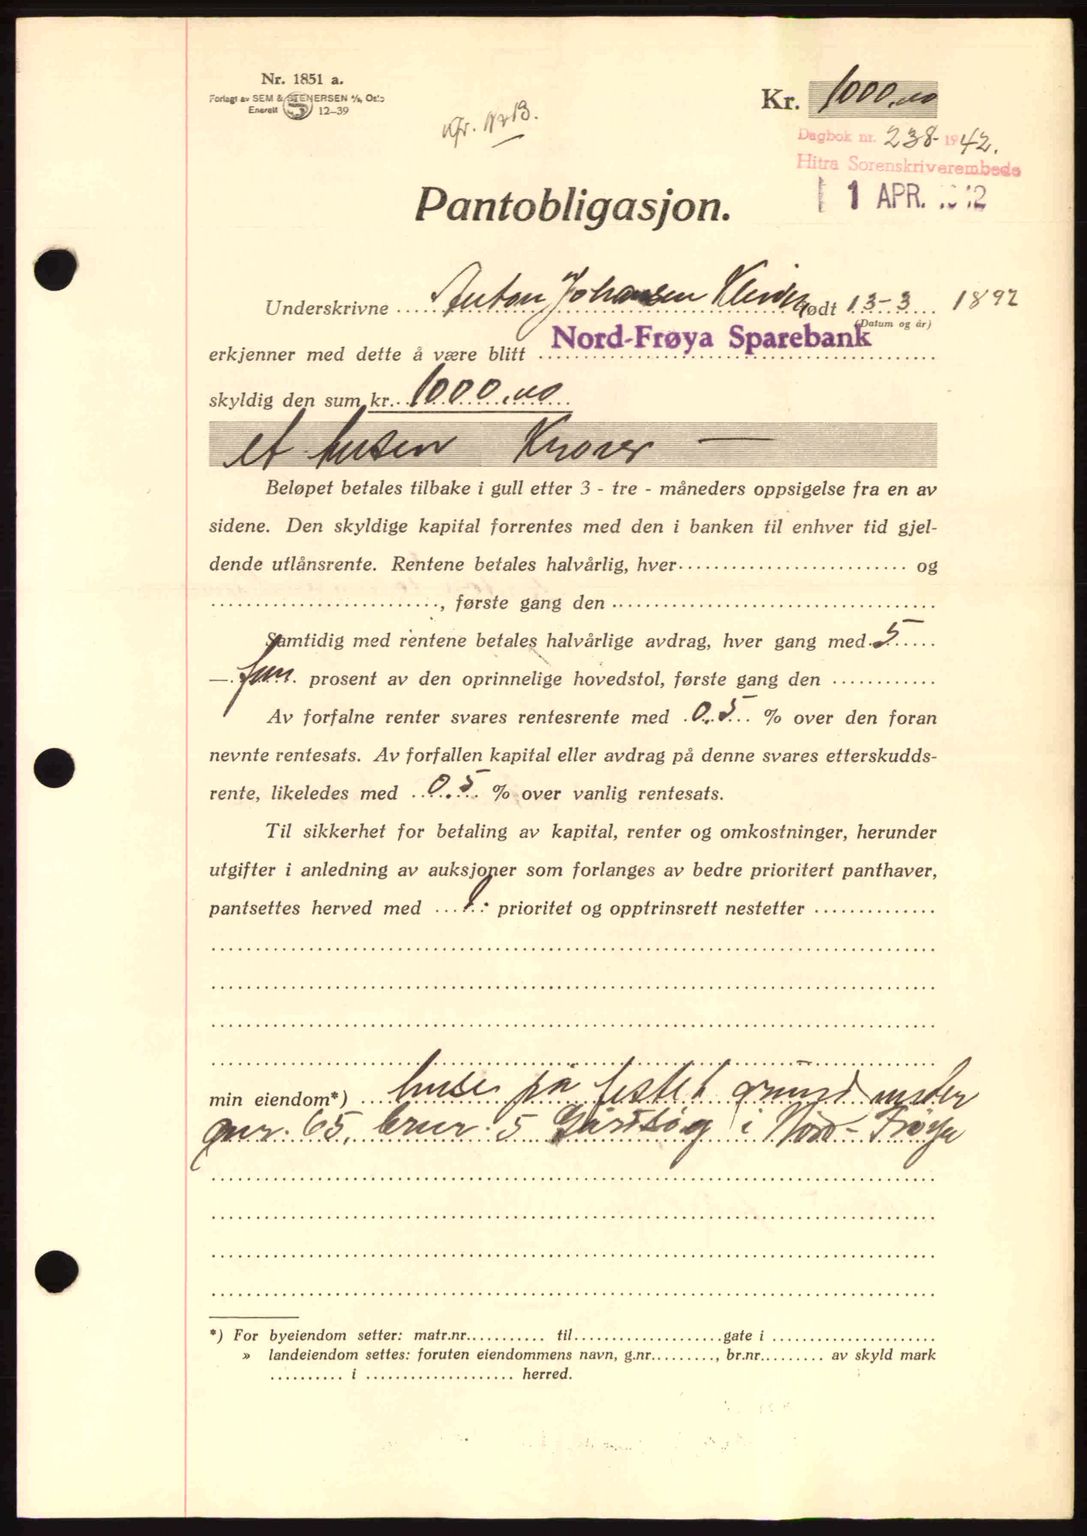 Nr. 1851 a.
Forlagt av SEM & STENERSEN A/S, Oslo
Enerett S 12-39
Kr. 1000,00
Dagbok nr. 238 - 1942.
Hitra Sorenskriverembede
1 APR. 1942
Pantobligasjon.
Underskrivne Anton Johansen født 13-3 1892
(Datum og år)
erkjenner med dette å være blitt Nord-Frøya Sparebank
skyldig den sum kr. 1000,00
et tusen Kroner —
Beløpet betales tilbake i gull etter 3 - tre - måneders oppsigelse fra en av
sidene. Den skyldige kapital forrentes med den i banken til enhver tid gjel-
dende utlånsrente. Rentene betales halvårlig, hver .......... og
.........., første gang den ..........
Samtidig med rentene betales halvårlige avdrag, hver gang med 5
— fem prosent av den oprinnelige hovedstol, første gang den ..........
Av forfalne renter svares rentesrente med 0.5 % over den foran
nevnte rentesats. Av forfallen kapital eller avdrag på denne svares etterskudds-
rente, likeledes med 0.5 % over vanlig rentesats.
Til sikkerhet for betaling av kapital, renter og omkostninger, herunder
utgifter i anledning av auksjoner som forlanges av bedre prioritert panthaver,
pantsettes herved med 1. prioritet og opptrinsrett nestetter ..........
min eiendom*) huse på festet grund under
gnr. 65, brnr. 5 i Nord-Frøya
*) For byeiendom setter: matr.nr.......... til.......... gate i ..........
» landeiendom settes: foruten eiendommens navn, g.nr.........., br.nr.......... av skyld mark
.......... i .......... herred.